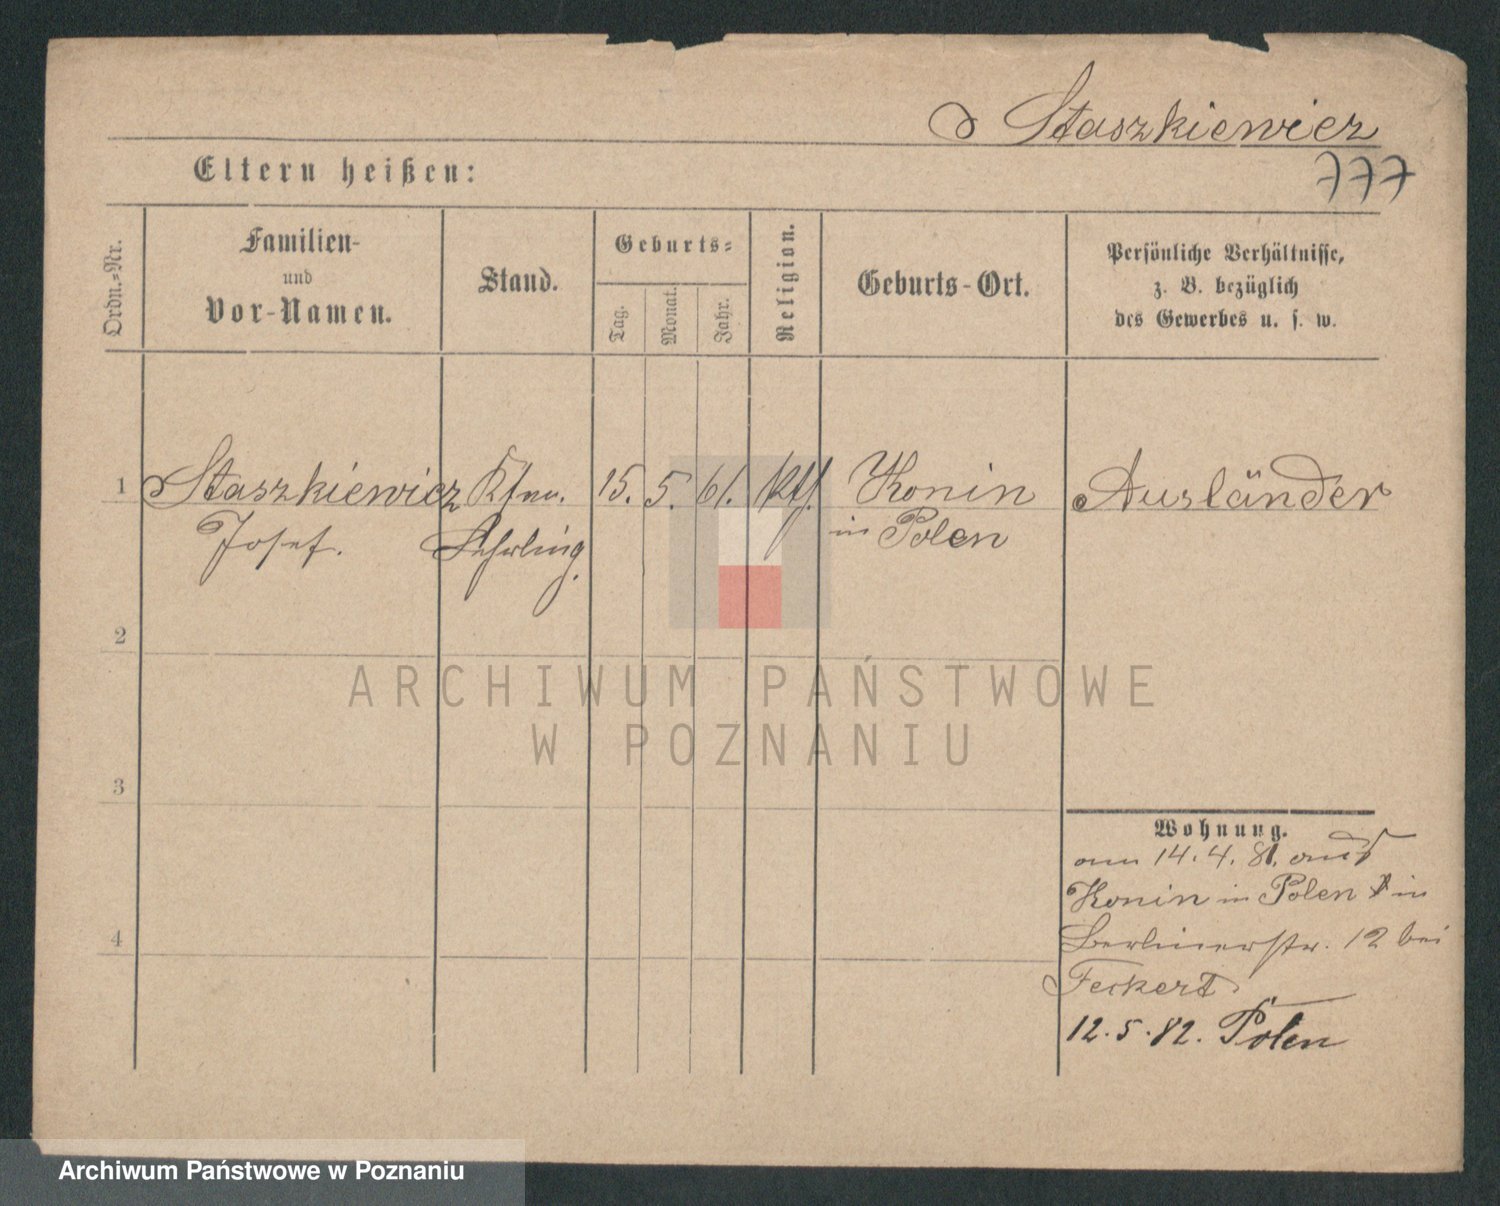 Staszkiewicz
777
Eltern heißen:
Ordn.=Nr.
Familien-
und
Vor-Namen.
Stand.
Geburts=
Tag.
Monat.
Jahr.
Religion.
Geburts-Ort.
Persönliche Verhältnisse,
z. B. bezüglich
des Gewerbes u. s. w.
1 Staszkiewicz Kfm. 15. 5. 61. kth. Konin Ausländer
Josef. Lehrling in Polen
2
3
4
Wohnung.
am 14.4.81. aus
Konin in Polen in
Berlinerstr. 12 bei
Feckert
12.5.82. Polen
ARCHIWUM PAŃSTWOWE
W POZNANIU
Archiwum Państwowe w Poznaniu